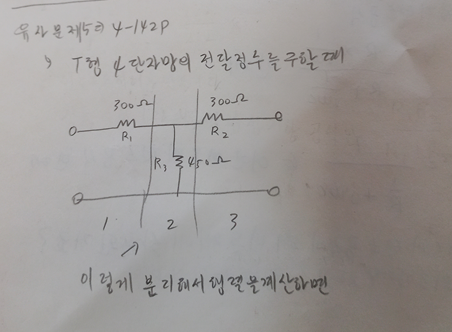 유사문제5⇒ 4-142P
> T형 4단자망의 전달정수를 구할때
300Ω 300Ω
R₁ R₂
R₃ 450Ω
1 2 3
이렇게 분리해서 행렬를계산하면